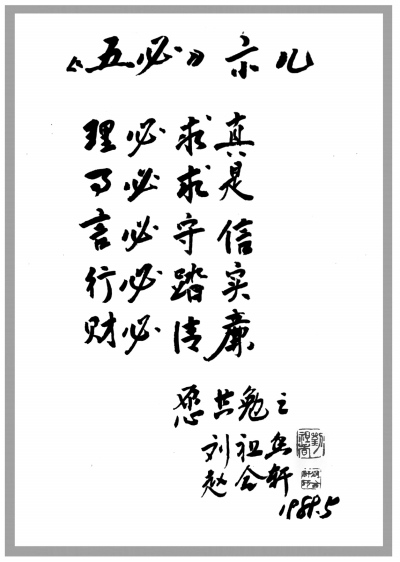 《五必》示儿
理必求真
事必求是
言必守信
行必踏实
财必清廉
愿共勉之
刘祖
赵会轩
1989.5